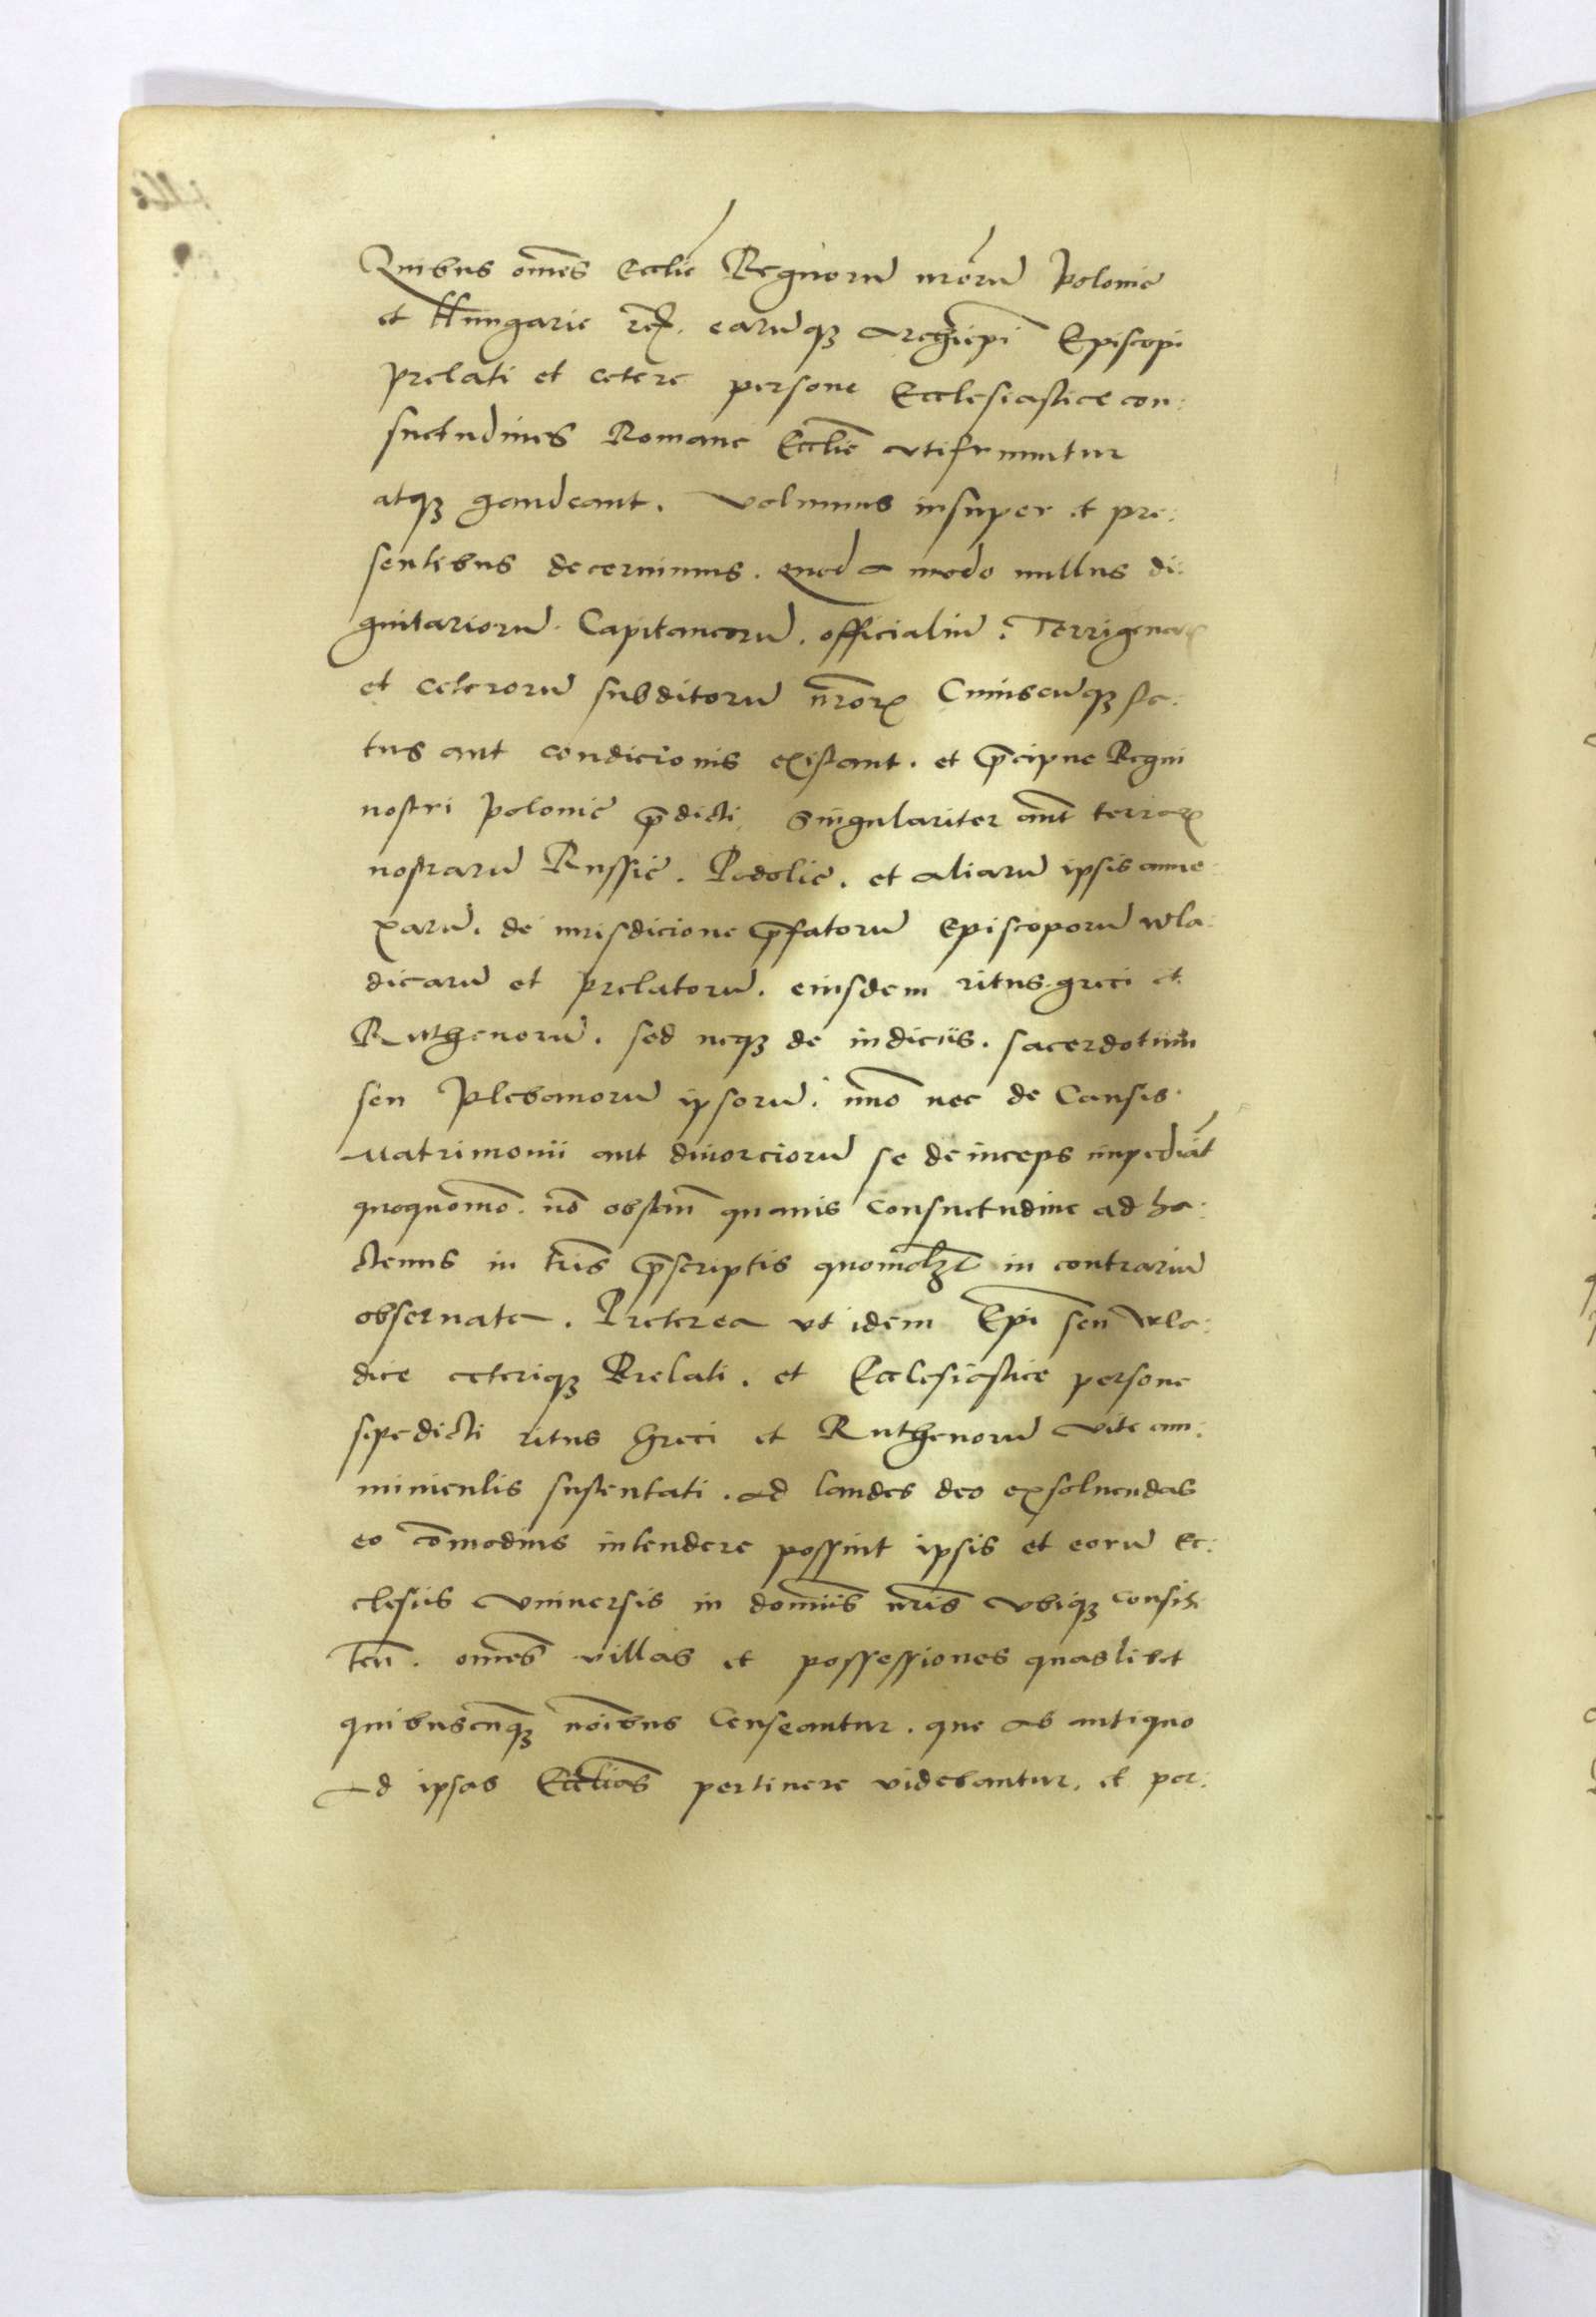 Quibus om̃es Eccliẽ Regnorũ nr̃orũ Polonie
et Hungarie rc̃. earũqꝫ Archiep̃i Episcopi
prelati et cetere persone Ecclesiastice con:
suetudines Romane Eccliẽ utifruuntur
atqꝫ gaudeant. Volumus insuper et pre:
sentibus decernimus. quod a modo nullus di:
gnitariorũ. Capitaneorũ. officialiũ. Terrigenaꝝ
et ceterorũ subditorũ nr̃oꝝ Cuiuscũqꝫ sta:
tus aut condicionis existant. et p̃cipue Regni
nostri Polonie p̃dicti, Singulariter aut̃ terraꝝ
nostrarũ Russie. Podolie. et aliarũ ipsis anne:
xarũ. de iurisdicione p̃fatorũ Episcoporũ wla:
dicarũ et prelatorũ. eiusdem ritus greci et
Ruthenorũ. sed neqꝫ de iudiciis. sacerdotum
seu Plebanorũ ipsorũ. im̃o nec de Causis
Matrimonii aut diuorciorũ se deinceps impediãt
quoquom̃o. nõ obstañ quauis Consuetudine ad ha:
ctenus in tr̃is p̃scriptis quomolꝫt in contrariũ
obseruata. Preterea ut idem Ep̃i seu wla:
dice ceteriqꝫ Prelati. et Ecclesiastice persone
sepedicti ritus Greci et Ruthenorũ vite am:
miniculis sustentati. ad laudes deo exsoluendas
eo cõmodius intendere possint ipsis et eorũ Ec:
clesiis Vniuersis in dominiis nr̃is Vbiqꝫ consis:
teñ. om̃es villas et possessiones quaslibet
quibuscũqꝫ noĩbus Censeantur. que ab antiquo
Ad ipsas Eccliãs pertinere videbantur. et per: